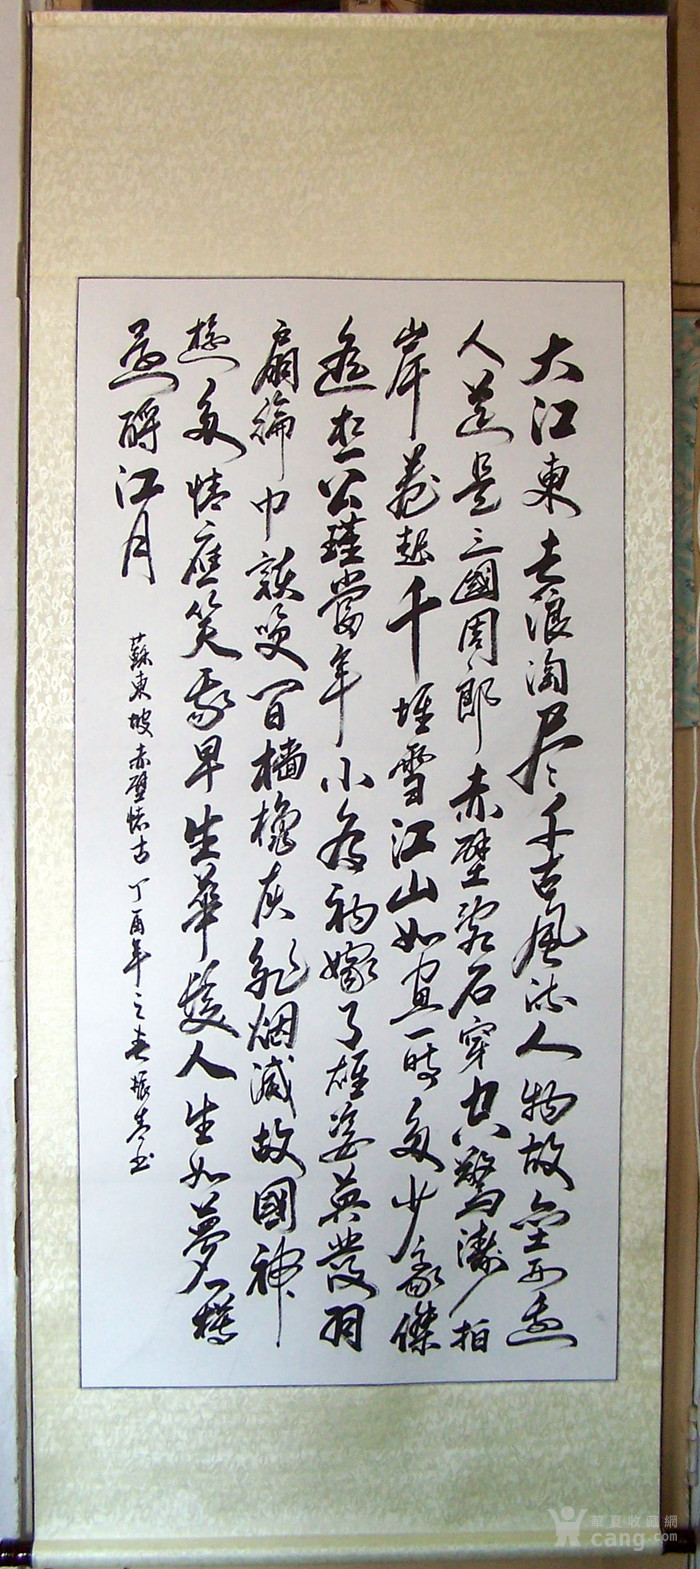 大江東去浪淘尽千古風流人物故壘西邊
人道是三國周郎赤壁亂石穿空驚濤拍
岸卷起千堆雪江山如畫一時多少豪傑
遙想公瑾當年小喬初嫁了雄姿英發羽
扇綸巾談笑間檣櫓灰飛烟滅故國神
遊多情應笑我早生華髮人生如夢一樽
還酹江月
蘇東坡赤壁懷古丁酉年之春振
華夏收藏網
cang.com